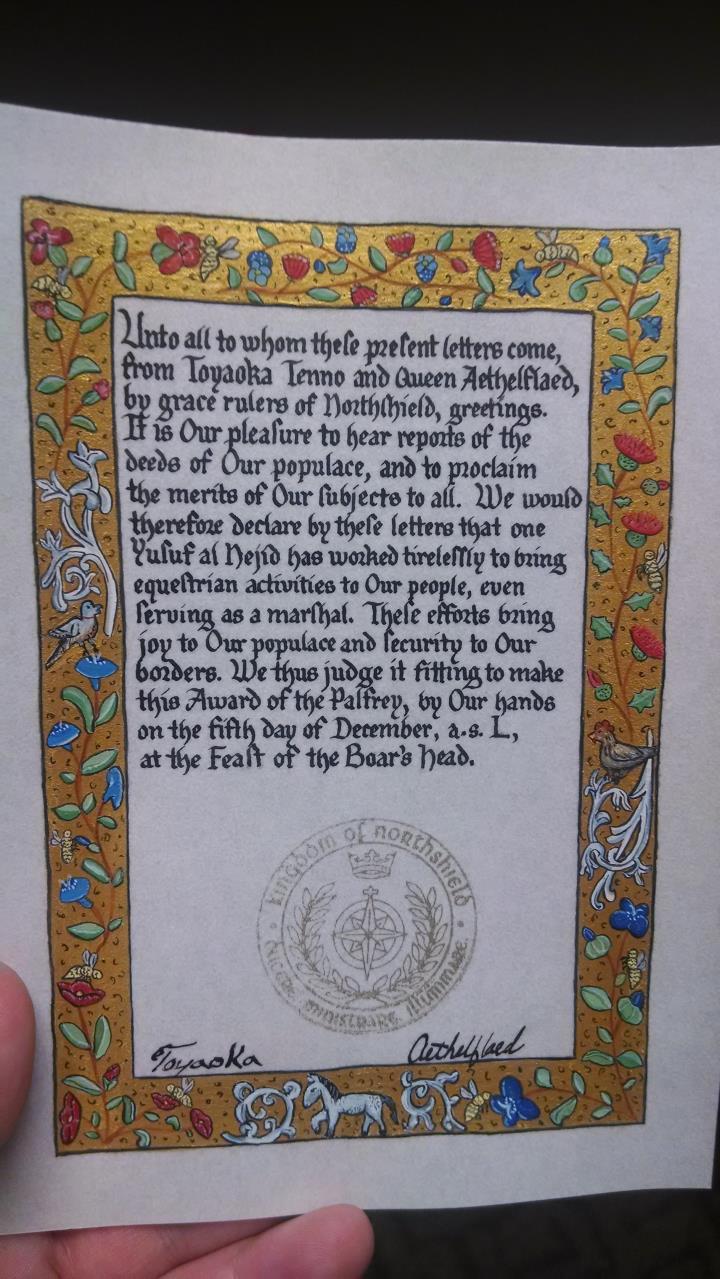 Unto all to whom theſe preſent letters come,
from Toyaoka Tenno and Queen Aethelflaed,
by grace rulers of Northſhield, greetings.
It is Our pleaſure to hear reports of the
deeds of Our populace, and to proclaim
the merits of Our ſubjects to all. We would
therefore declare by theſe letters that one
Yuſuf al Nejid has worked tireleſſly to bring
equeſtrian activities to Our people, even
ſerving as a marſhal. Theſe efforts bring
joy to Our populace and ſecurity to Our
borders. We thus judge it fitting to make
this Award of the Palfrey, by Our hands
on the fifth day of December, a.s. L,
at the Feaſt of the Boar's Head.
Kingdom of Northshield
Ducere, Ministrare, Illuminare.
Toyaoka
Aethelflaed